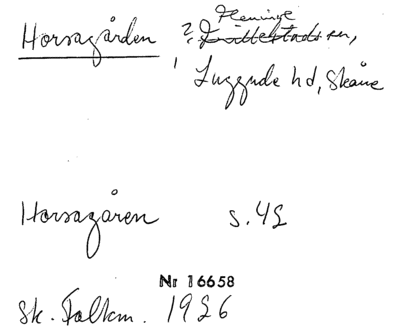 Horsagården ? Fleninge
~~Kvidlestads~~ sn,
Luggude hd, Skåne
Horsagåren s. 42
Nr 16658
Sk. Folkm. 1926